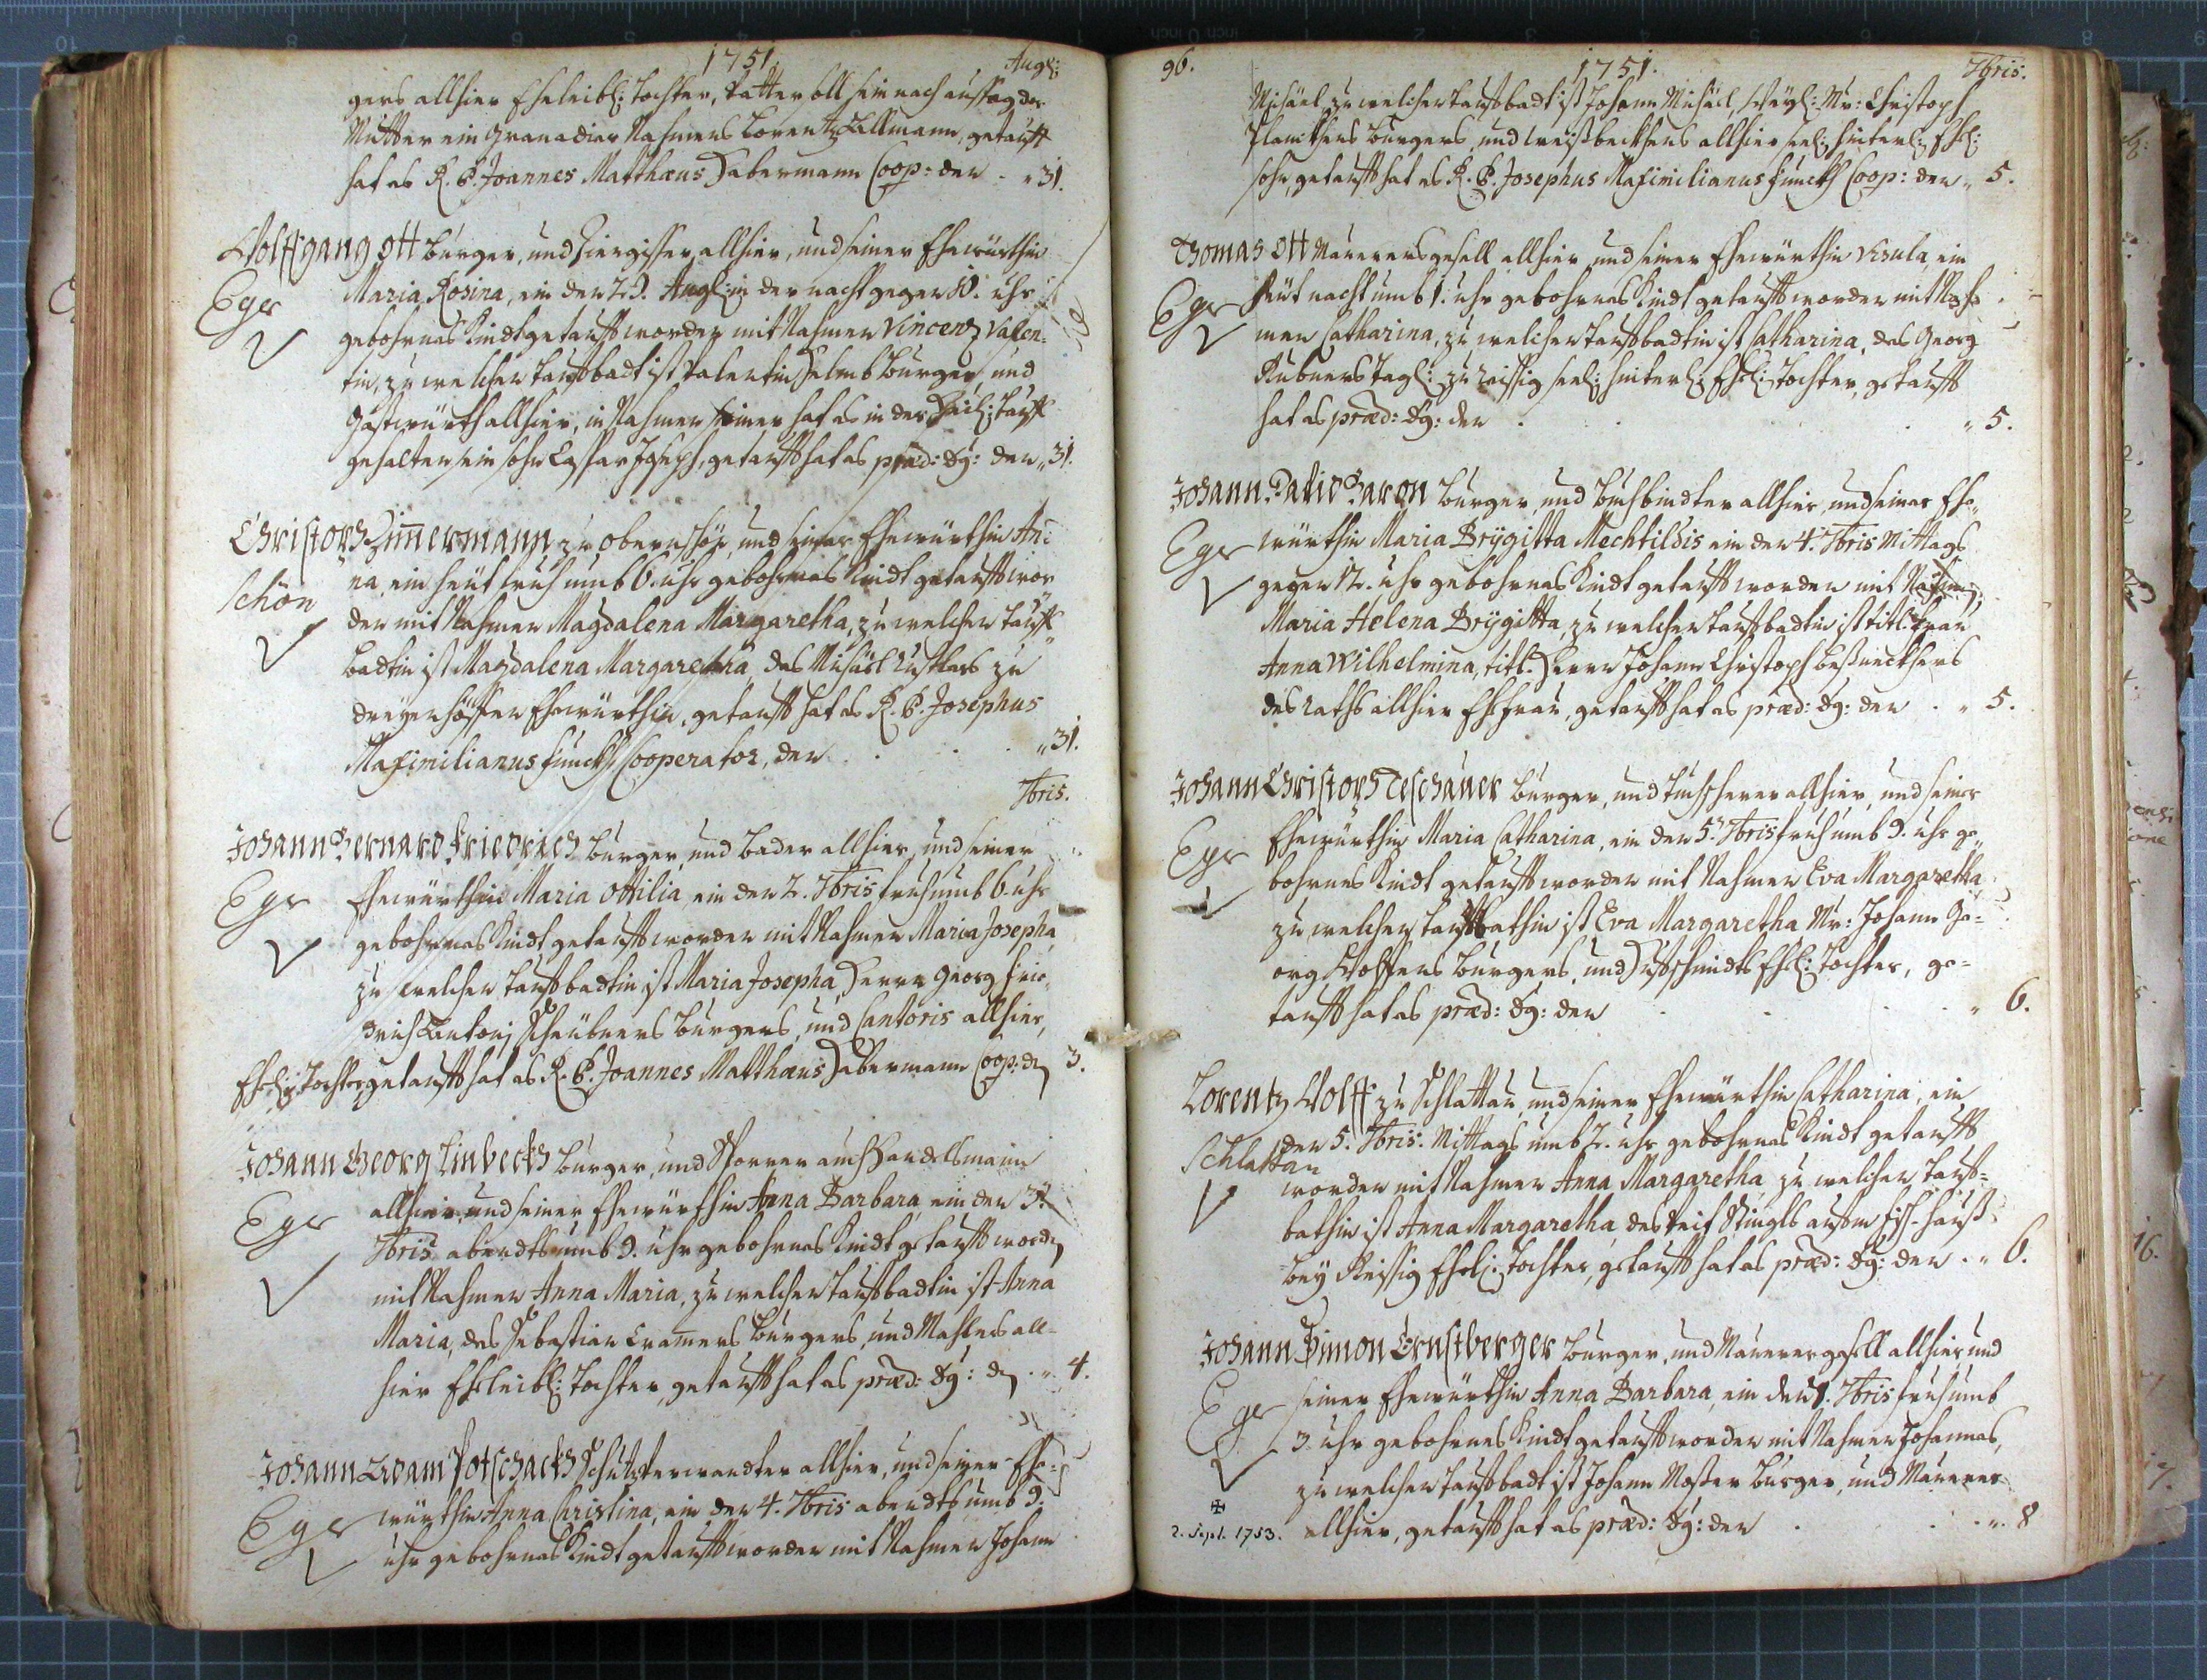 1751. Augl:
gers allhier Eheleibl: Tochter, Vatter soll sein nach aussag der
Mutter ein Granadier Nahmens Lorentz Tallmann, getaufft
hat es R. P. Joannes Matthæus Habermann Coop: den „ 31.
Wolffgang Ott Burger, und Ziengisser allhier, und seiner Ehewürthin
Eger
Maria Rosina, ein den 29. Augl: in der nacht gegen 10. uhr
gebohrnes Kindt getaufft worden mit Nahmen Vincenz Valen-
tin, zu welcher Tauffbadt ist Valentin Helmb Burger, und
Gastwürth allhier, in Nahmen seiner hat es in der Heil: Tauff
gehalten sein sohn Caspar Joseph, getaufft hat es præd: Dg: den „ 31.
Christoph Zimmermann zu Obernschön, und seiner Ehewürthin An-
Schön
na, ein heut fruh umb 6. uhr gebohrnes Kindt getaufft wor
den mit Nahmen Magdalena Margaretha, zu welcher Tauff
badtin ist Magdalena Margaretha, des Michael Küstlers zu
Dreyenhöffen Ehewürthin, getaufft hat es R. P. Josephus
Maximilianus Funckh Cooperator, den „ 31.
7bris.
Johann Bernard Friedrich Burger, und Bader allhier, und seiner
Eger
Ehewürthin Maria Ottilia, ein den 2. 7bris fruh umb 6. uhr
gebohrnes Kindt getaufft worden mit Nahmen Maria Josepha
zu welcher Tauffbadtin ist Maria Josepha, Herrn Georg Frie-
drich Antonj Scheübners Burgers, und Cantoris allhier,
Ehel: Tochter, getaufft hat es R. P. Joannes Matthæus Habermann Coop: den 3.
Johann Georg Linbeckh Burger, und Sporrer auch Handelsmann
Eger
allhier, und seiner Ehewürthin Anna Barbara, ein den 3.
7bris abendts umb 9. uhr gebohrnes Kindt getaufft worden
mit Nahmen Anna Maria, zu welcher Tauffbadtin ist Anna
Maria, des Sebastian Cramers Burgers, und Mahlers all-
hier Eheleibl: Tochter, getaufft hat es præd: Dg: den „ 4.
Johann Adam Potschackh Schutzverwandter allhier, und seiner Ehe-
Eger
würthin Anna Christina, ein den 4. 7bris abendts umb 9.
uhr gebohrnes Kindt getaufft worden mit Nahmen Johann
96. 1751. 7bris.
Michäel, zu welcher Tauffbadt ist Johann Michäel, Weyl: Mr: Christoph
Planckhens Burgers, und Weißbeckhens allhier seel: hinterl: Ehel:
sohn, getaufft hat es R. P. Josephus Maximilianus Funckh Coop: den „ 5.
Thomas Ott Maurersgesell allhier und seiner Ehewürthin Ursula, ein
Eger
heut nacht umb 1. uhr gebohrnes Kindt getaufft worden mit Nah-
men Catharina, zu welcher Tauffbadtin ist Catharina, des Georg
Kubners Tagl: zu Reissig seel: hinterl: Ehel: Tochter, getaufft
hat es præd: Dg: den „ 5.
Johann David Baron Burger, und Buchbindter allhier, und seiner Ehe-
Eger
würthin Maria Brÿgitta Mechtildis ein den 4. 7bris Mittags
gegen 12. uhr gebohrnes Kindt getaufft worden mit Nahmen
Maria Helena Brÿgitta, zu welcher Tauffbadtin ist titl: Frau
Anna Wilhelmina, titl: Herrn Johann Christoph Beßneckhers
des raths allhier Ehefrau, getaufft hat es præd: Dg: den „ 5.
Johann Christoph Teschauer Burger, und Tuchscherer allhier, und seiner
Eger
Ehewürthin Maria Catharina, ein den 5. 7bris fruh umb 9. uhr ge-
bohrnes Kindt getaufft worden mit Nahmen Eva Margaretha
zu welcher Tauffbathin ist Eva Margaretha Mr: Johann Ge-
org Wolffens Burgers, und Hufschmidts Ehel: Tochter, ge-
taufft hat es præd: Dg: den „ 6.
Lorentz Wolff zu Schlattau, und seiner Ehewürthin Catharina, ein
Schlattau
den 5. 7bris. Mittags umb 2. uhr gebohrnes Kindt getaufft
worden mit Nahmen Anna Margaretha zu welcher Tauff-
bathin ist Anna Margaretha, des Veit Stingls ausm Fischhauß
bey Reissig Ehel: Tochter, getaufft hat es præd: Dg: den „ 6.
Johann Simon Ernstberger Burger, und Maurergesell allhier, und
Eger
seiner Ehewürthin Anna Barbara, ein den 8. 7bris fruh umb
3. uhr gebohrnes Kindt getaufft worden mit Nahmen Johannes,
zu welcher Tauffbadt ist Johann Moßer Burger, und Maurer
2. Sept. 1753. allhier, getaufft hat es præd: Dg: den „ 8